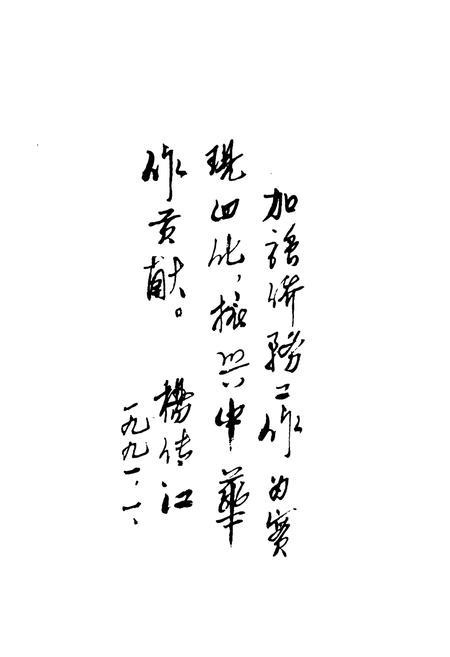 加强侨务工作为实
现四化，振兴中华
作贡献。
杨传江
一九九一、一、